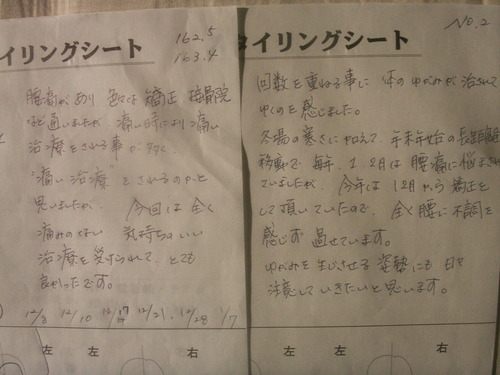 162.5
163.4
タイリングシート
腰痛があり 色々な 矯正 接骨院
など通いましたが 痛い時により痛い
治療をされる事が多く
"痛い治療"をされるのかと
思いましたが、今回は全く
痛みのない 気持ちのいい
治療を受けられて とても
良かったです。
12/3 12/10 12/17 12/21. 12/28 1/7
左 左 右
No.2
タイリングシート
回数を重ねる事に 体のゆがみが治されて
ゆくのを感じました。
冬場の寒さに加えて、年末年始の長距離
移動で 毎年、1、2月は 腰痛に悩まされ
ていましたが、今年は12月から 矯正を
して頂いていたので、全く腰に不調を
感じず 過せています。
ゆがみを生じさせる姿勢にも 日々
注意していきたいと思います。
左 左 右